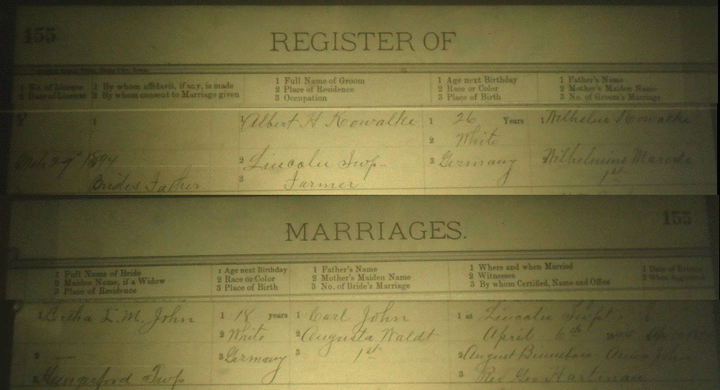 155
REGISTER OF
1 No. of License 2 By whom affidavit, if any, is made 1 Full Name of Groom 1 Age next Birthday 1 Father's Name
2 Date of License 2 By whom consent to Marriage given 2 Place of Residence 2 Race or Color 2 Mother's Maiden Name
3 Occupation 3 Place of Birth 3 No. of Groom's Marriage
8 1 Albert H Kowalke 1 26 Years 1 Wilhelm Kowalke
2 White
29 1894 2 Lincoln Twp 3 Germany 2 Wilhelmine
Brides Father 3 Farmer 1st
MARRIAGES. 155
1 Full Name of Bride 1 Age next Birthday 1 Father's Name 1 Where and when Married 1 Date of
2 Maiden Name, if a Widow 2 Race or Color 2 Mother's Maiden Name 2 Witnesses
3 Place of Residence 3 Place of Birth 3 No. of Bride's Marriage 3 By whom Certified, Name and Office
1 E. M. John 1 18 years 1 Carl John 1 at Lincoln Twp
2 White 2 Augusta Waldt April 6th
2 3 Germany 3 1st 2 August
Hungerford Twp 3 Rev Geo Hartman